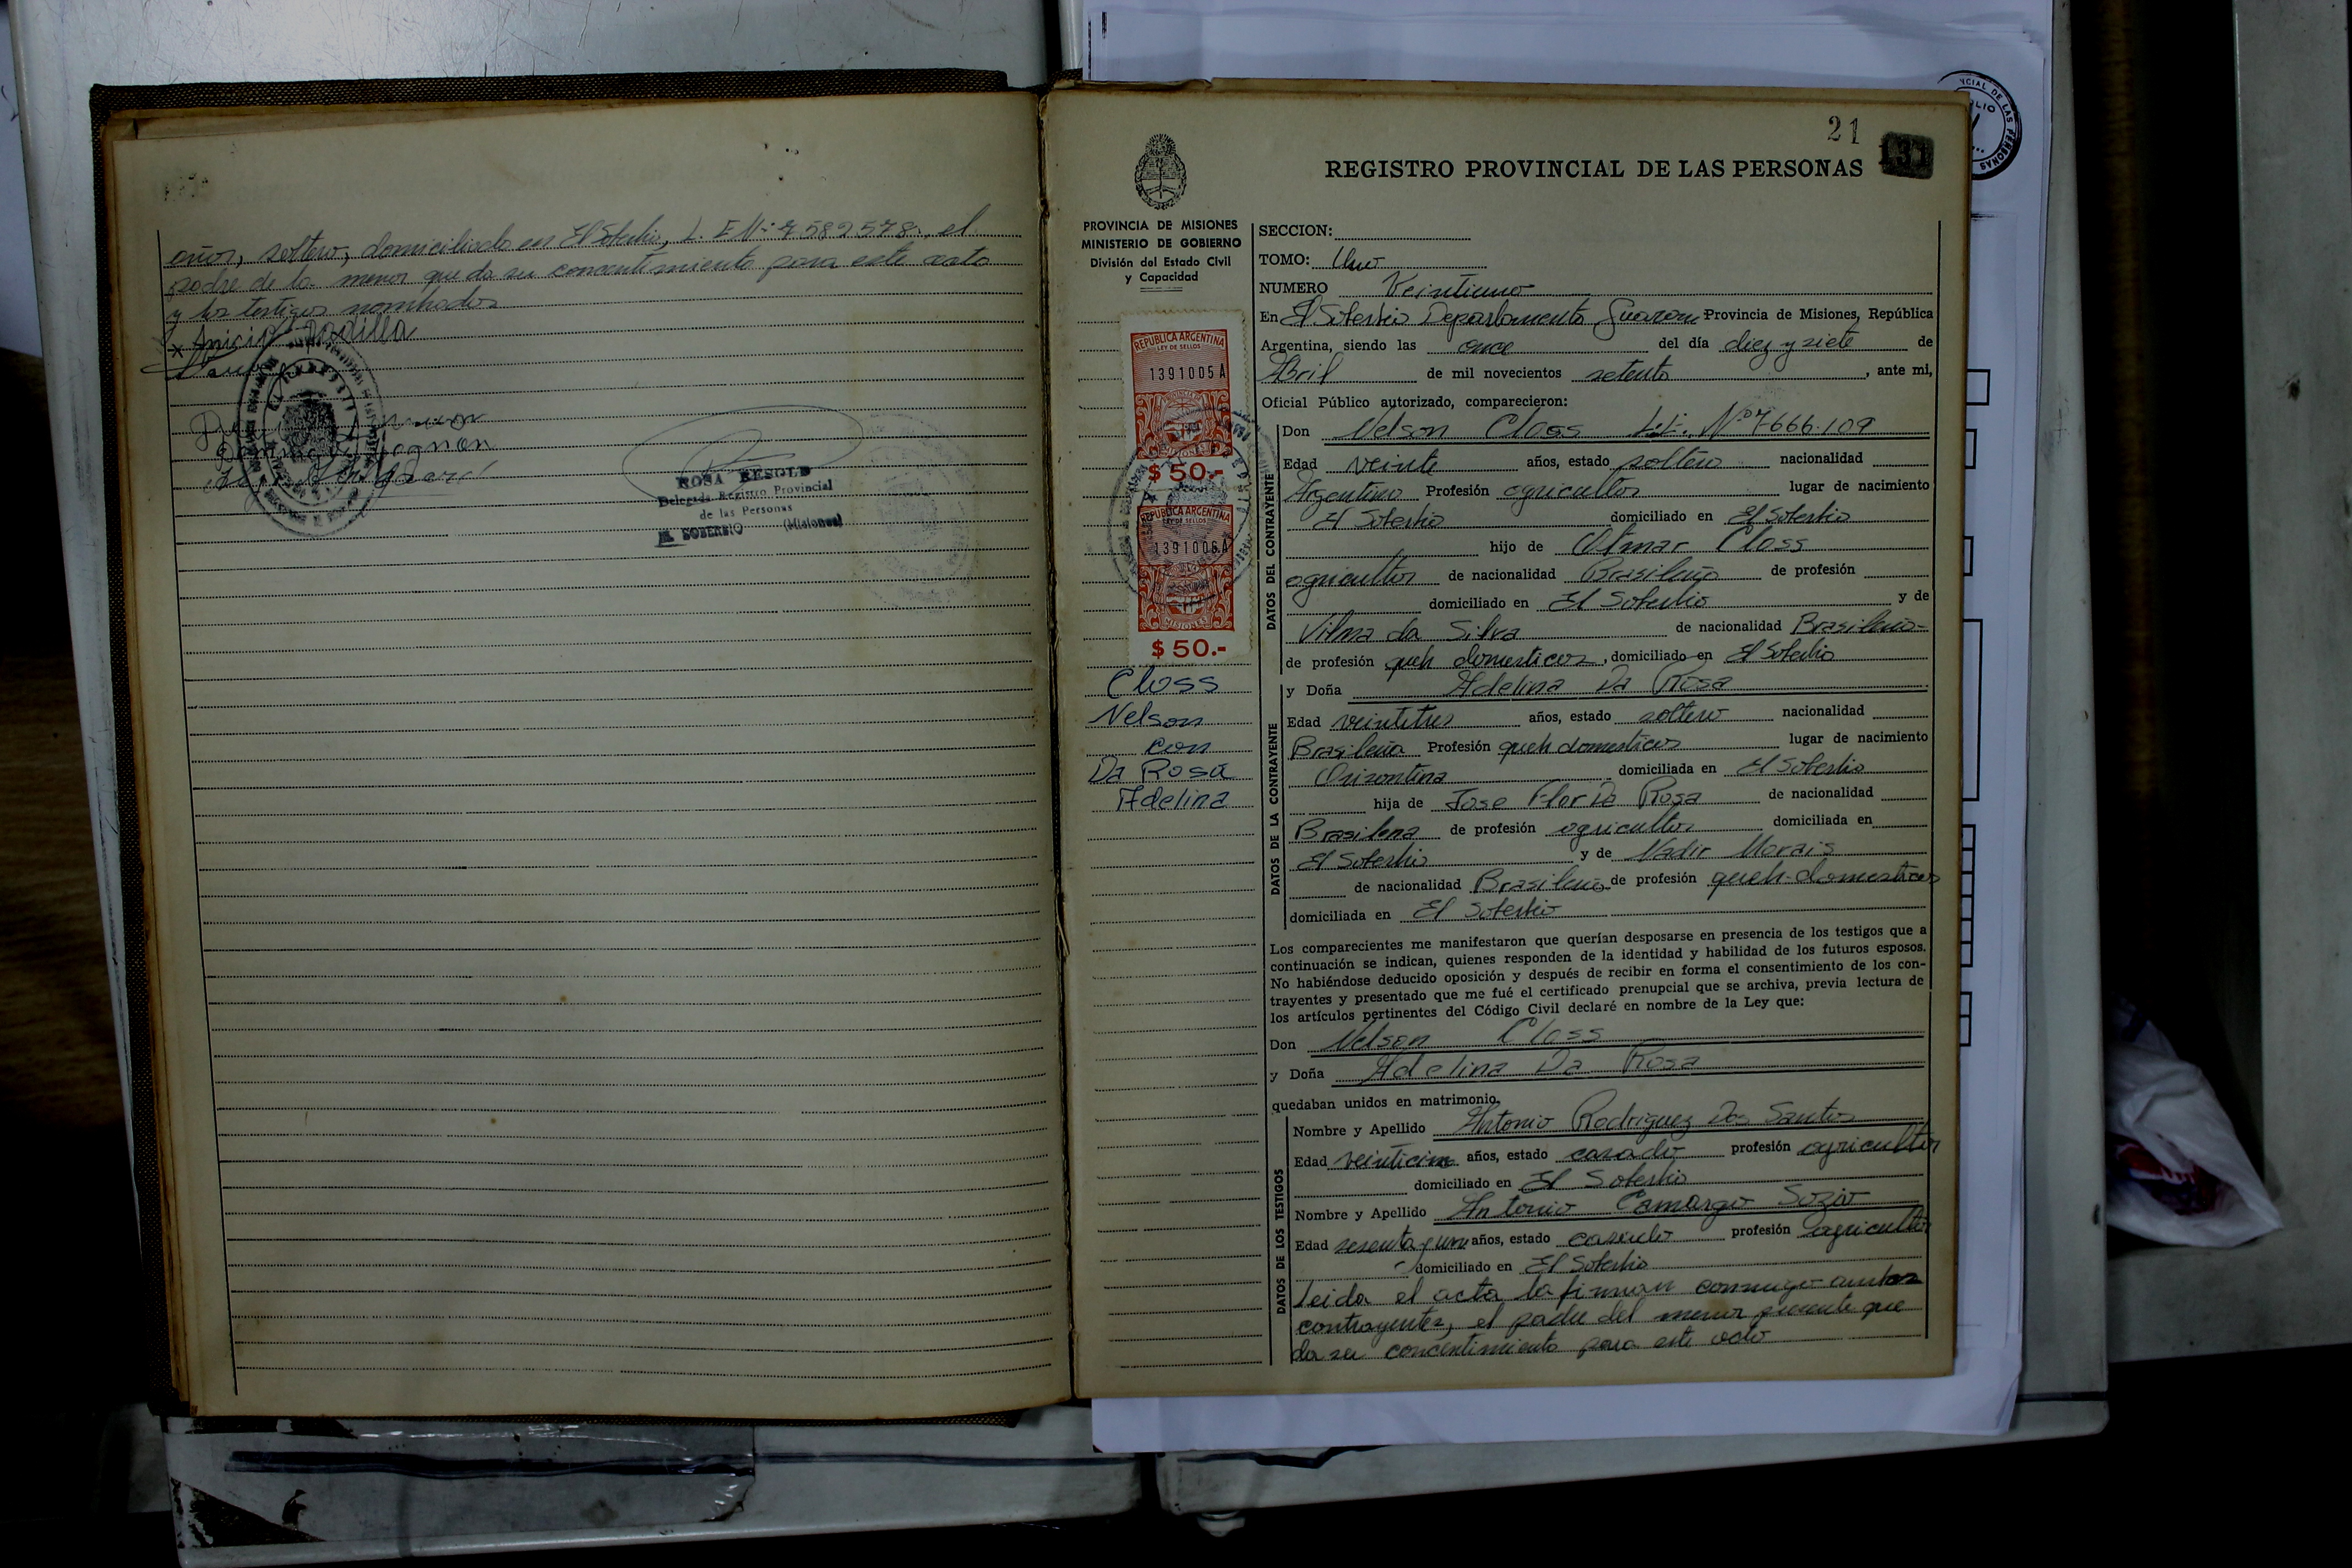 años, soltero, domiciliado en El Soberbio, L. E Nº 7582578, el
padre de la menor que da su concentimiento para este acto
y los testigos nombrados
x Anicio Padilla
ROSA RESOLD
Delegada Registro Provincial
de las Personas
EL SOBERBIO (Misiones)
21
131
REGISTRO PROVINCIAL DE LAS PERSONAS
PROVINCIA DE MISIONES
MINISTERIO DE GOBIERNO
División del Estado Civil
y Capacidad
REPUBLICA ARGENTINA
LEY DE SELLOS
1391005 A
MISIONES
$ 50.-
REPUBLICA ARGENTINA
LEY DE SELLOS
1391006 A
MISIONES
$ 50.-
Closs
Nelson
con
Da Rosa
Adelina
SECCION:
TOMO: Uno
NUMERO Veintiuno
En El Soberbio Departamento Guarani Provincia de Misiones, República
Argentina, siendo las once del día diez y siete de
Abril de mil novecientos setenta, ante mi,
Oficial Público autorizado, comparecieron:
DATOS DEL CONTRAYENTE
Don Nelson Closs L.E. Nº 7.666.109
Edad veinte años, estado soltero nacionalidad
Argentino Profesión agricultor lugar de nacimiento
El Soberbio domiciliado en El Soberbio
hijo de Otmar Closs
agricultor de nacionalidad Brasileño de profesión
domiciliado en El Soberbio y de
Vilma da Silva de nacionalidad Brasileña-
de profesión queh domesticos, domiciliado en El Soberbio
DATOS DE LA CONTRAYENTE
y Doña Adelina Da Rosa
Edad veintitres años, estado soltero nacionalidad
Brasileña Profesión queh domesticos lugar de nacimiento
Orizontina domiciliada en El Soberbio
hija de Jose Flor Da Rosa de nacionalidad
Brasilena de profesión agricultor domiciliada en
El Soberbio y de Nadir Morais
de nacionalidad Brasileña de profesión queh-domesticos
domiciliada en El Soberbio
Los comparecientes me manifestaron que querían desposarse en presencia de los testigos que a
continuación se indican, quienes responden de la identidad y habilidad de los futuros esposos.
No habiéndose deducido oposición y después de recibir en forma el consentimiento de los con-
trayentes y presentado que me fué el certificado prenupcial que se archiva, previa lectura de
los artículos pertinentes del Código Civil declaré en nombre de la Ley que:
Don Nelson Closs
y Doña Adelina Da Rosa
quedaban unidos en matrimonio.
DATOS DE LOS TESTIGOS
Nombre y Apellido Antonio Rodriguez Dos Santos
Edad veinticinco años, estado casado profesión agricultor
domiciliado en El Soberbio
Nombre y Apellido Antonio Camargo Sozio
Edad sesenta y uno años, estado casado profesión agricultor
domiciliado en El Soberbio
leida el acta la firman conmigo ambos
contrayentes, el padre del menor presente que
da su concentimiento para este acto